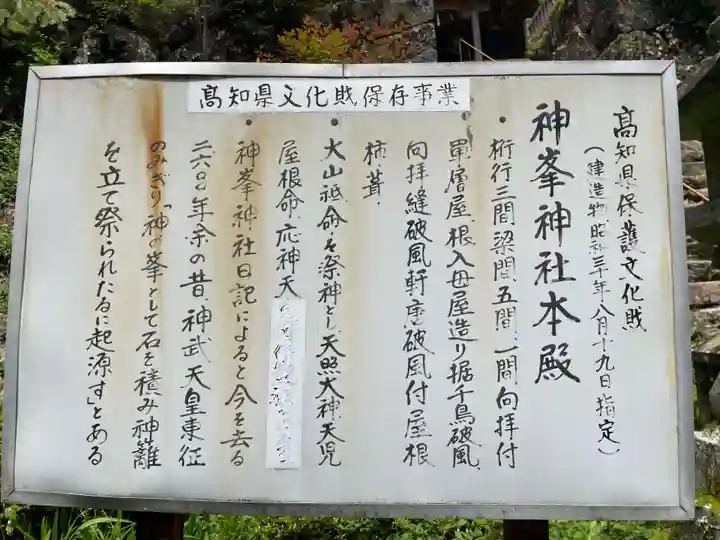 高知県文化財保存事業
高知県保護文化財
(建造物昭和三十年八月十九日指定)
神峯神社本殿
・桁行三間梁間五間、一間向拝付
單層屋根入母屋造り据千鳥破風、
向拝縋破風軒唐破風付屋根
柿葺、
・大山祗命を祭神とし天照大神天児
屋根命、応神天
・神峯神社日記によると今を去る
二六〇〇年余の昔、神武天皇東征
のみぎり「神の峯として石を積み神籬
を立て祭られたるに起源す」とある